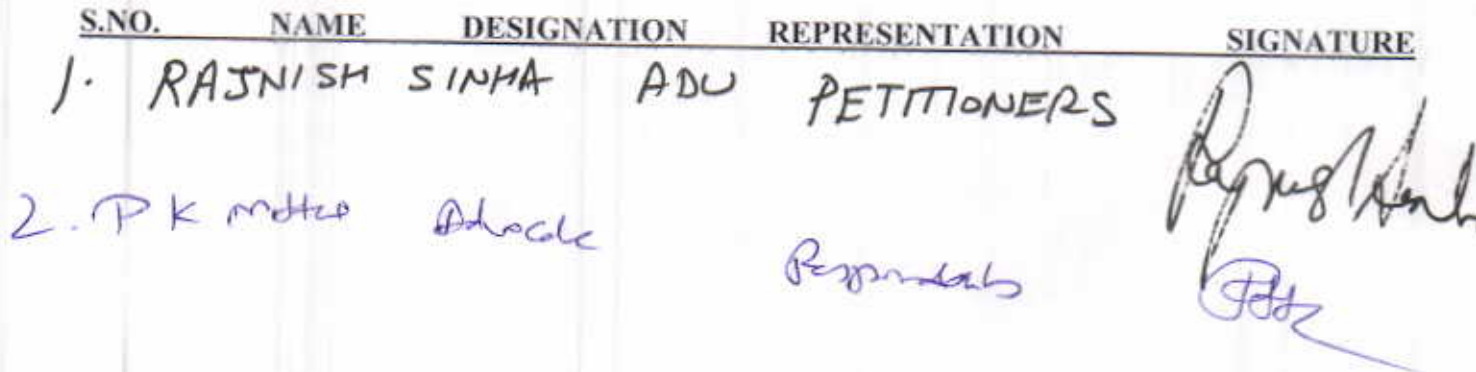 S.NO. NAME DESIGNATION REPRESENTATION SIGNATURE
1. RAJNISH SINHA ADV PETITIONERS
2. P K Advocate Respondents